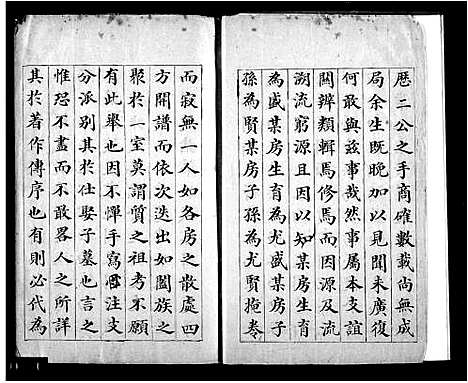 歷二公之手商確數載尚無成
局余生既晚加以見聞未廣復
何敢與茲事哉然事屬本支誼
關辨類輯焉修焉而因源及流
溯流窮源且因以知某房生育
為盛某房生育為尤盛某房子
孫為賢某房子孫為尤賢掩卷
而寂無一人如各房之散處四
方開譜而依次迭出如闔族之
聚於一室莫謂質之祖考不願
有此舉也因不憚手寫心注支
分派別其於仕娶子墓也言之
惟恐不盡而不敢畧人之所詳
其於著作傳序也有則必代為